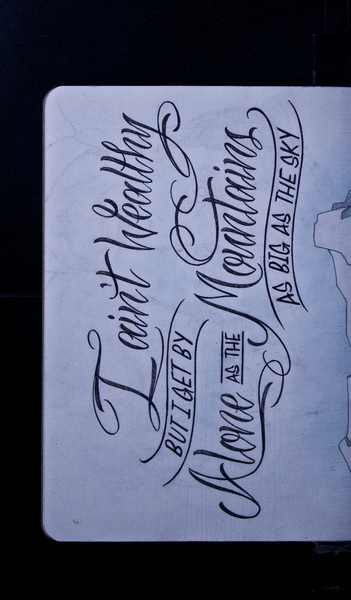 I ain't Wealthy
BUT I GET BY
Alone AS THE Mountains
AS BIG AS THE SKY